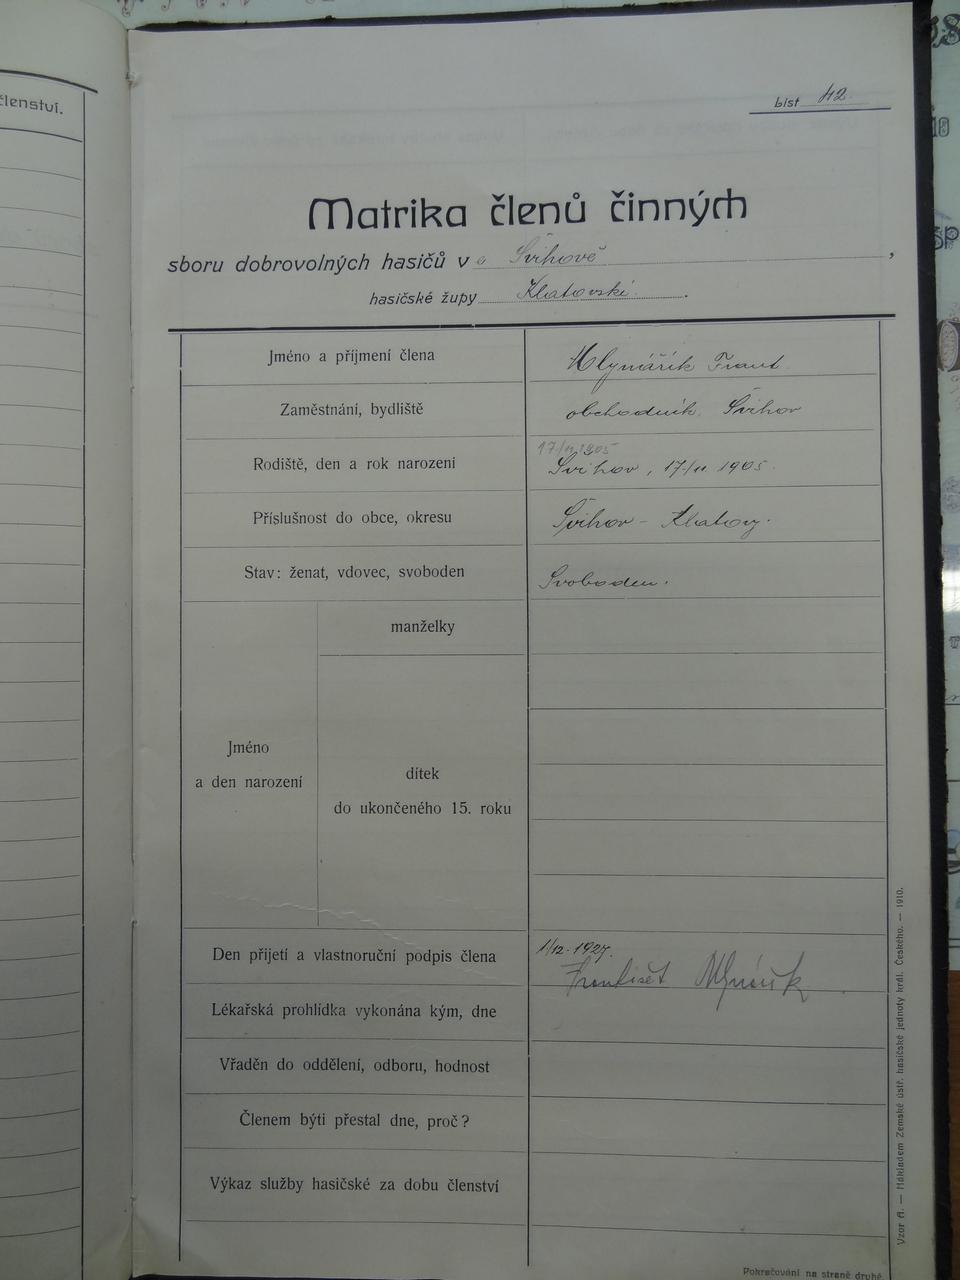 členství.
List 42.
Matrika členů činných
sboru dobrovolných hasičů v e Švihově,
hasičské župy Klatovské.
Jméno a příjmení člena Mlynářík Frant.
Zaměstnání, bydliště obchodník, Švihov
17/11 1905
Rodiště, den a rok narození Švihov, 17/11 1905.
Příslušnost do obce, okresu Švihov - Klatovy.
Stav: ženat, vdovec, svoboden Svoboden.
manželky
Jméno
a den narození
dítek
do ukončeného 15. roku
Den přijetí a vlastnoruční podpis člena 1/12. 1927.
František Mlynářík
Lékařská prohlídka vykonána kým, dne
Vřaděn do oddělení, odboru, hodnost
Členem býti přestal dne, proč?
Výkaz služby hasičské za dobu členství
Vzor A. — Nákladem Zemské ústř. hasičské jednoty král. Českého. — 1910.
Pokračování na straně druhé